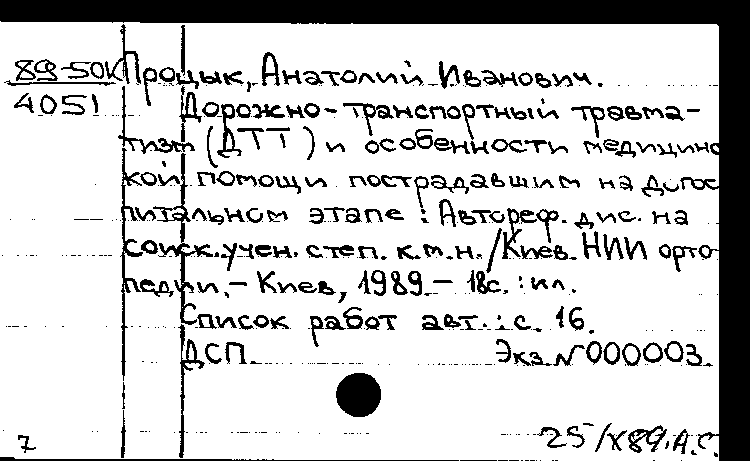 89-50К Процык, Анатолий Иванович.
4051 Дорожно-транспортный травма-
тизм (ДТТ) и особенности медицинс
кой помощи пострадавшим на догос
питальном этапе : Автореф. дис. на
соиск. учен. степ. к.м.н. / Киев. НИИ орто
педии. – Киев, 1989. – 18с. : ил.
Список работ авт. : с. 16.
ДСП. Экз. № 000003.
7 25/X89. А.С.